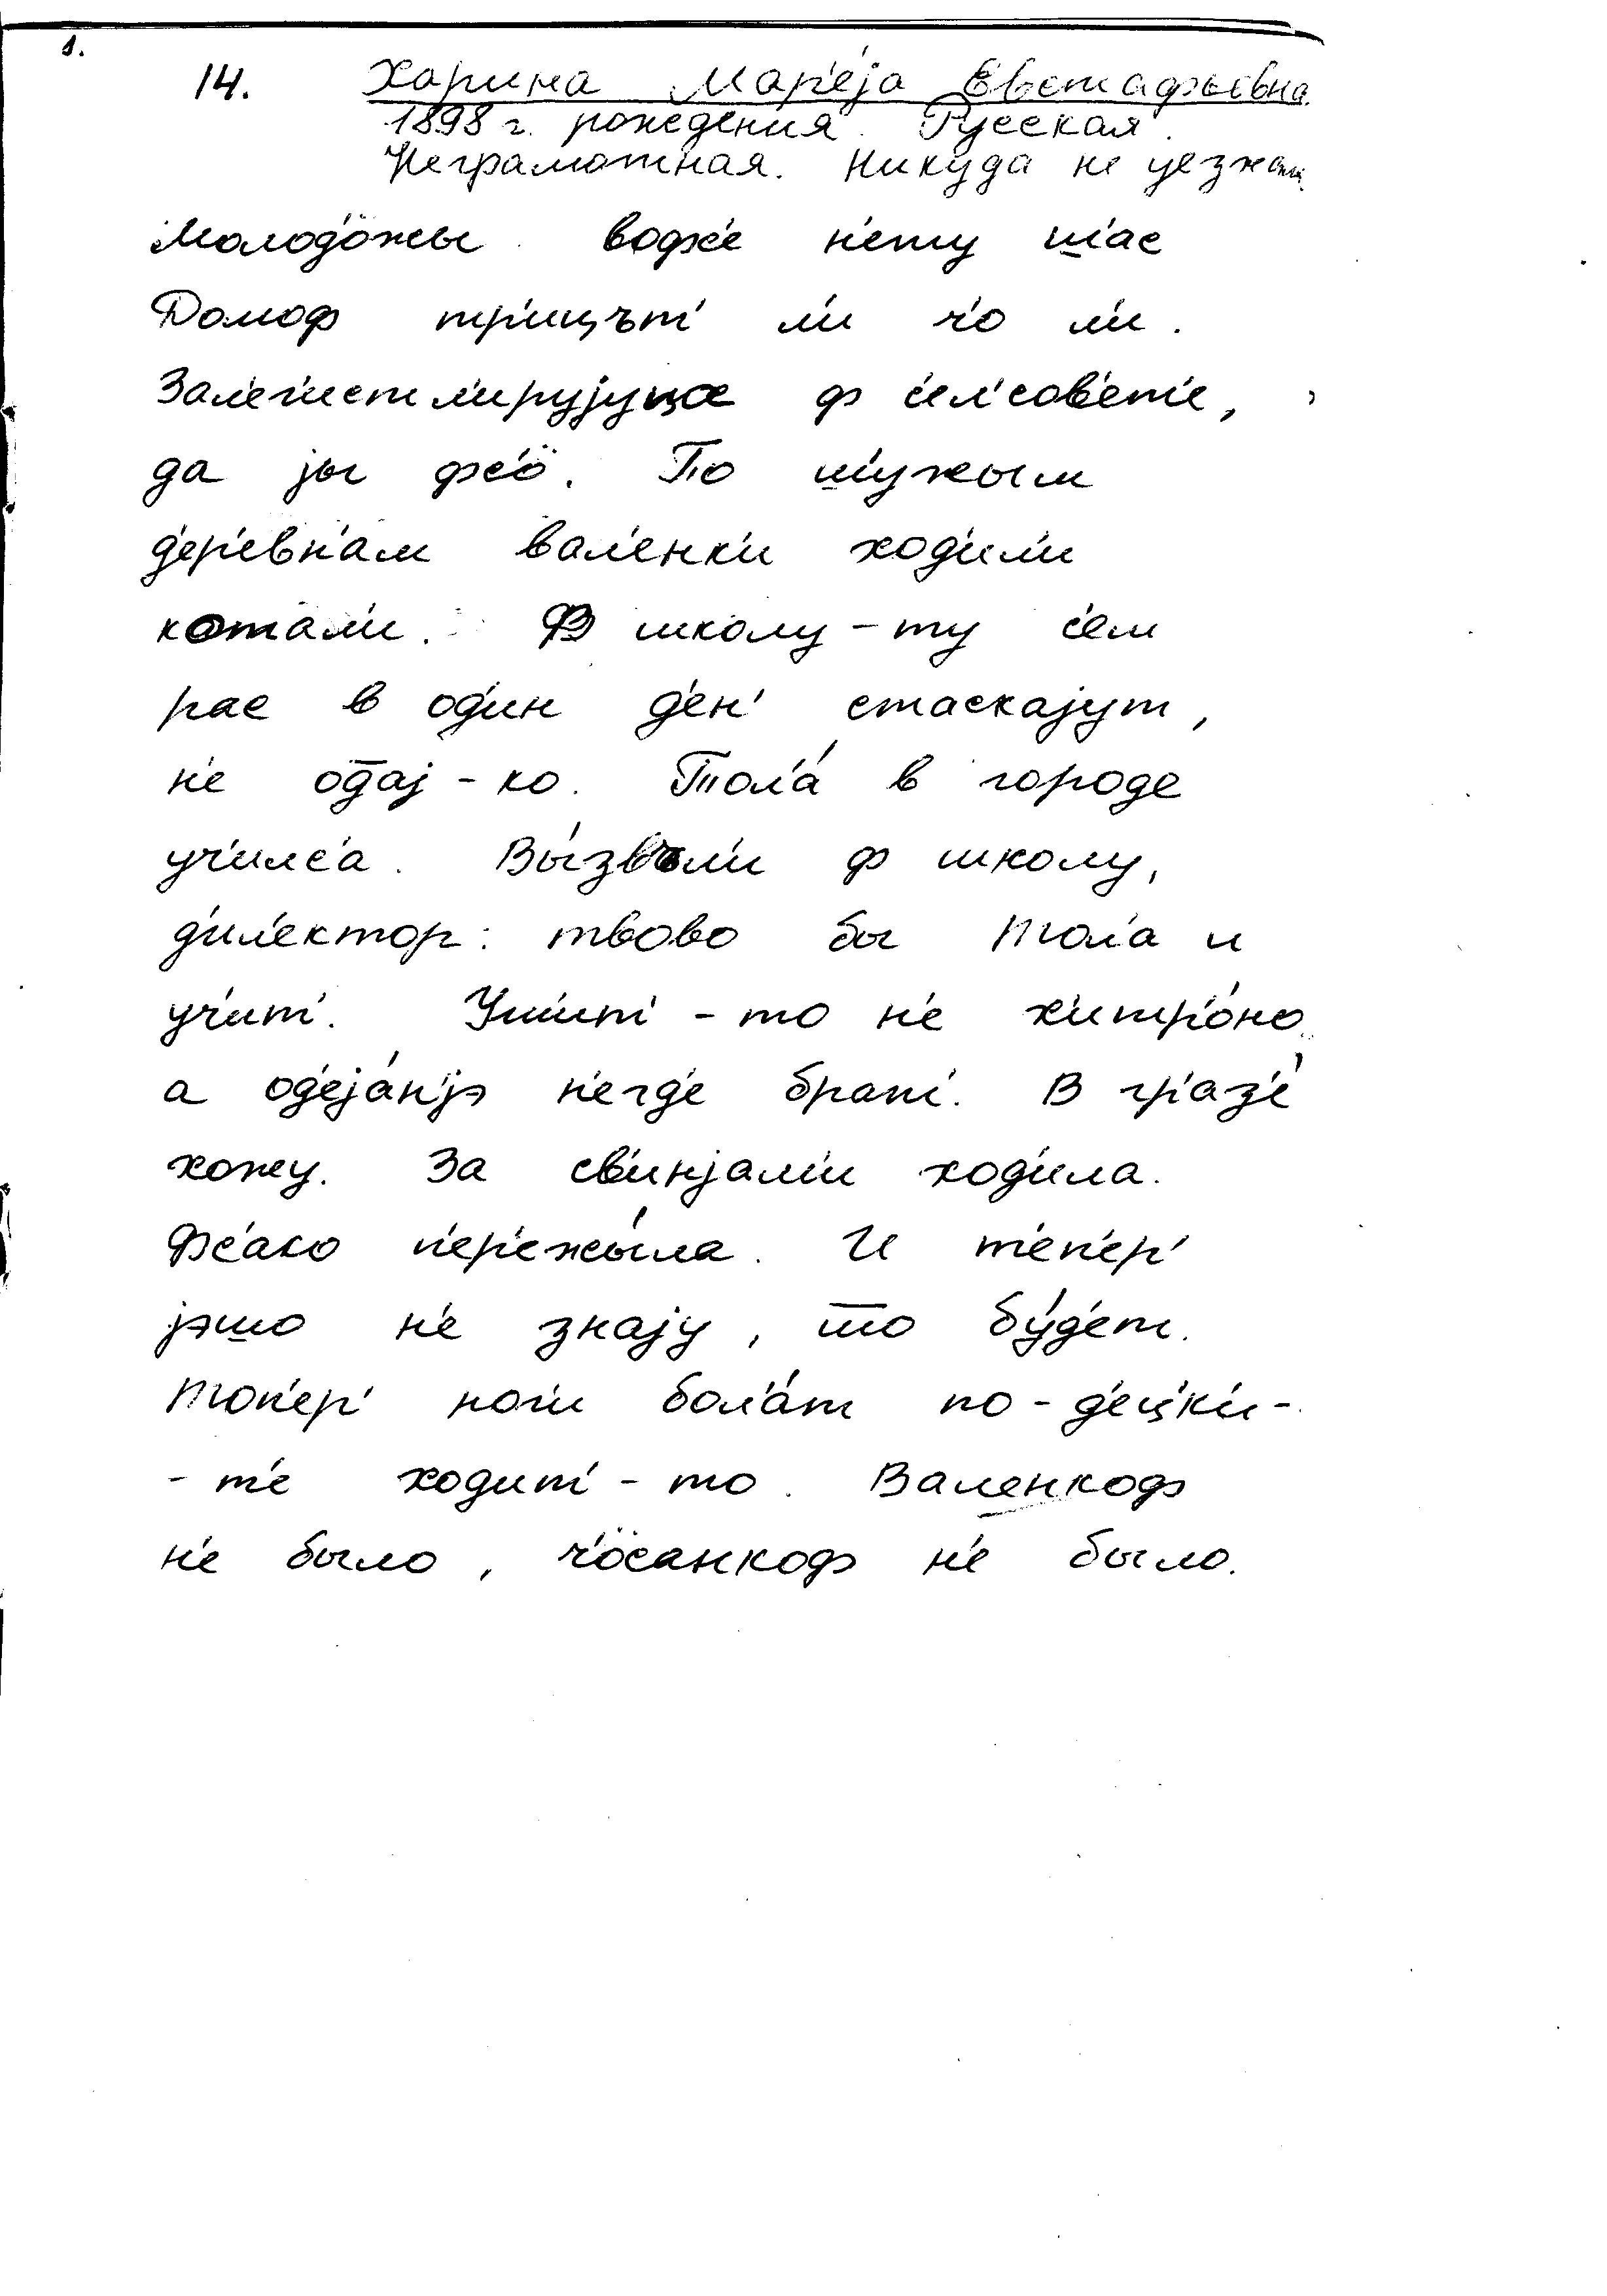 1.
14. Харина Мар'е́jа Евстафьевна
1898 г. рождения. Русская.
Неграмотная. Никуда не уезжала
Молод'о́жы вофс'е н'ету ш'ас
Домоф тр'ицът' л'и ч'о л'и.
Зал'ег'истл'ируjуца ф с'ел'сов'ет'е,
да jы фс'о. По ш'ужым
д'ер'евн'ам вал'енк'и ход'ил'и
катал'и. В школу-ту с'ем
рас в од'ин д'ен' стаскаjут,
н'е одаj-ко. Тол'а́ в городе
уч'илс'а. Вы́звъл'и ф школу,
д'ил'ектор: твово бы Тол'а и
уч'ит'. Уш'ит'-то н'е х'итр'о́но
а од'еjа́н'jэ н'егд'е брат'. В гр'аз'е́
хожу. За св'инjам'и ход'ила.
Фс'ако п'ер'ежы́ла. И т'еп'ер'
jэшо н'е знаjу, што бу́д'ет.
Топ'ер' ног'и бол'а́т по-д'ецк'и-
-т'е ходит'-то. Валенкоф
н'е было, ч'о́санкоф н'е было.